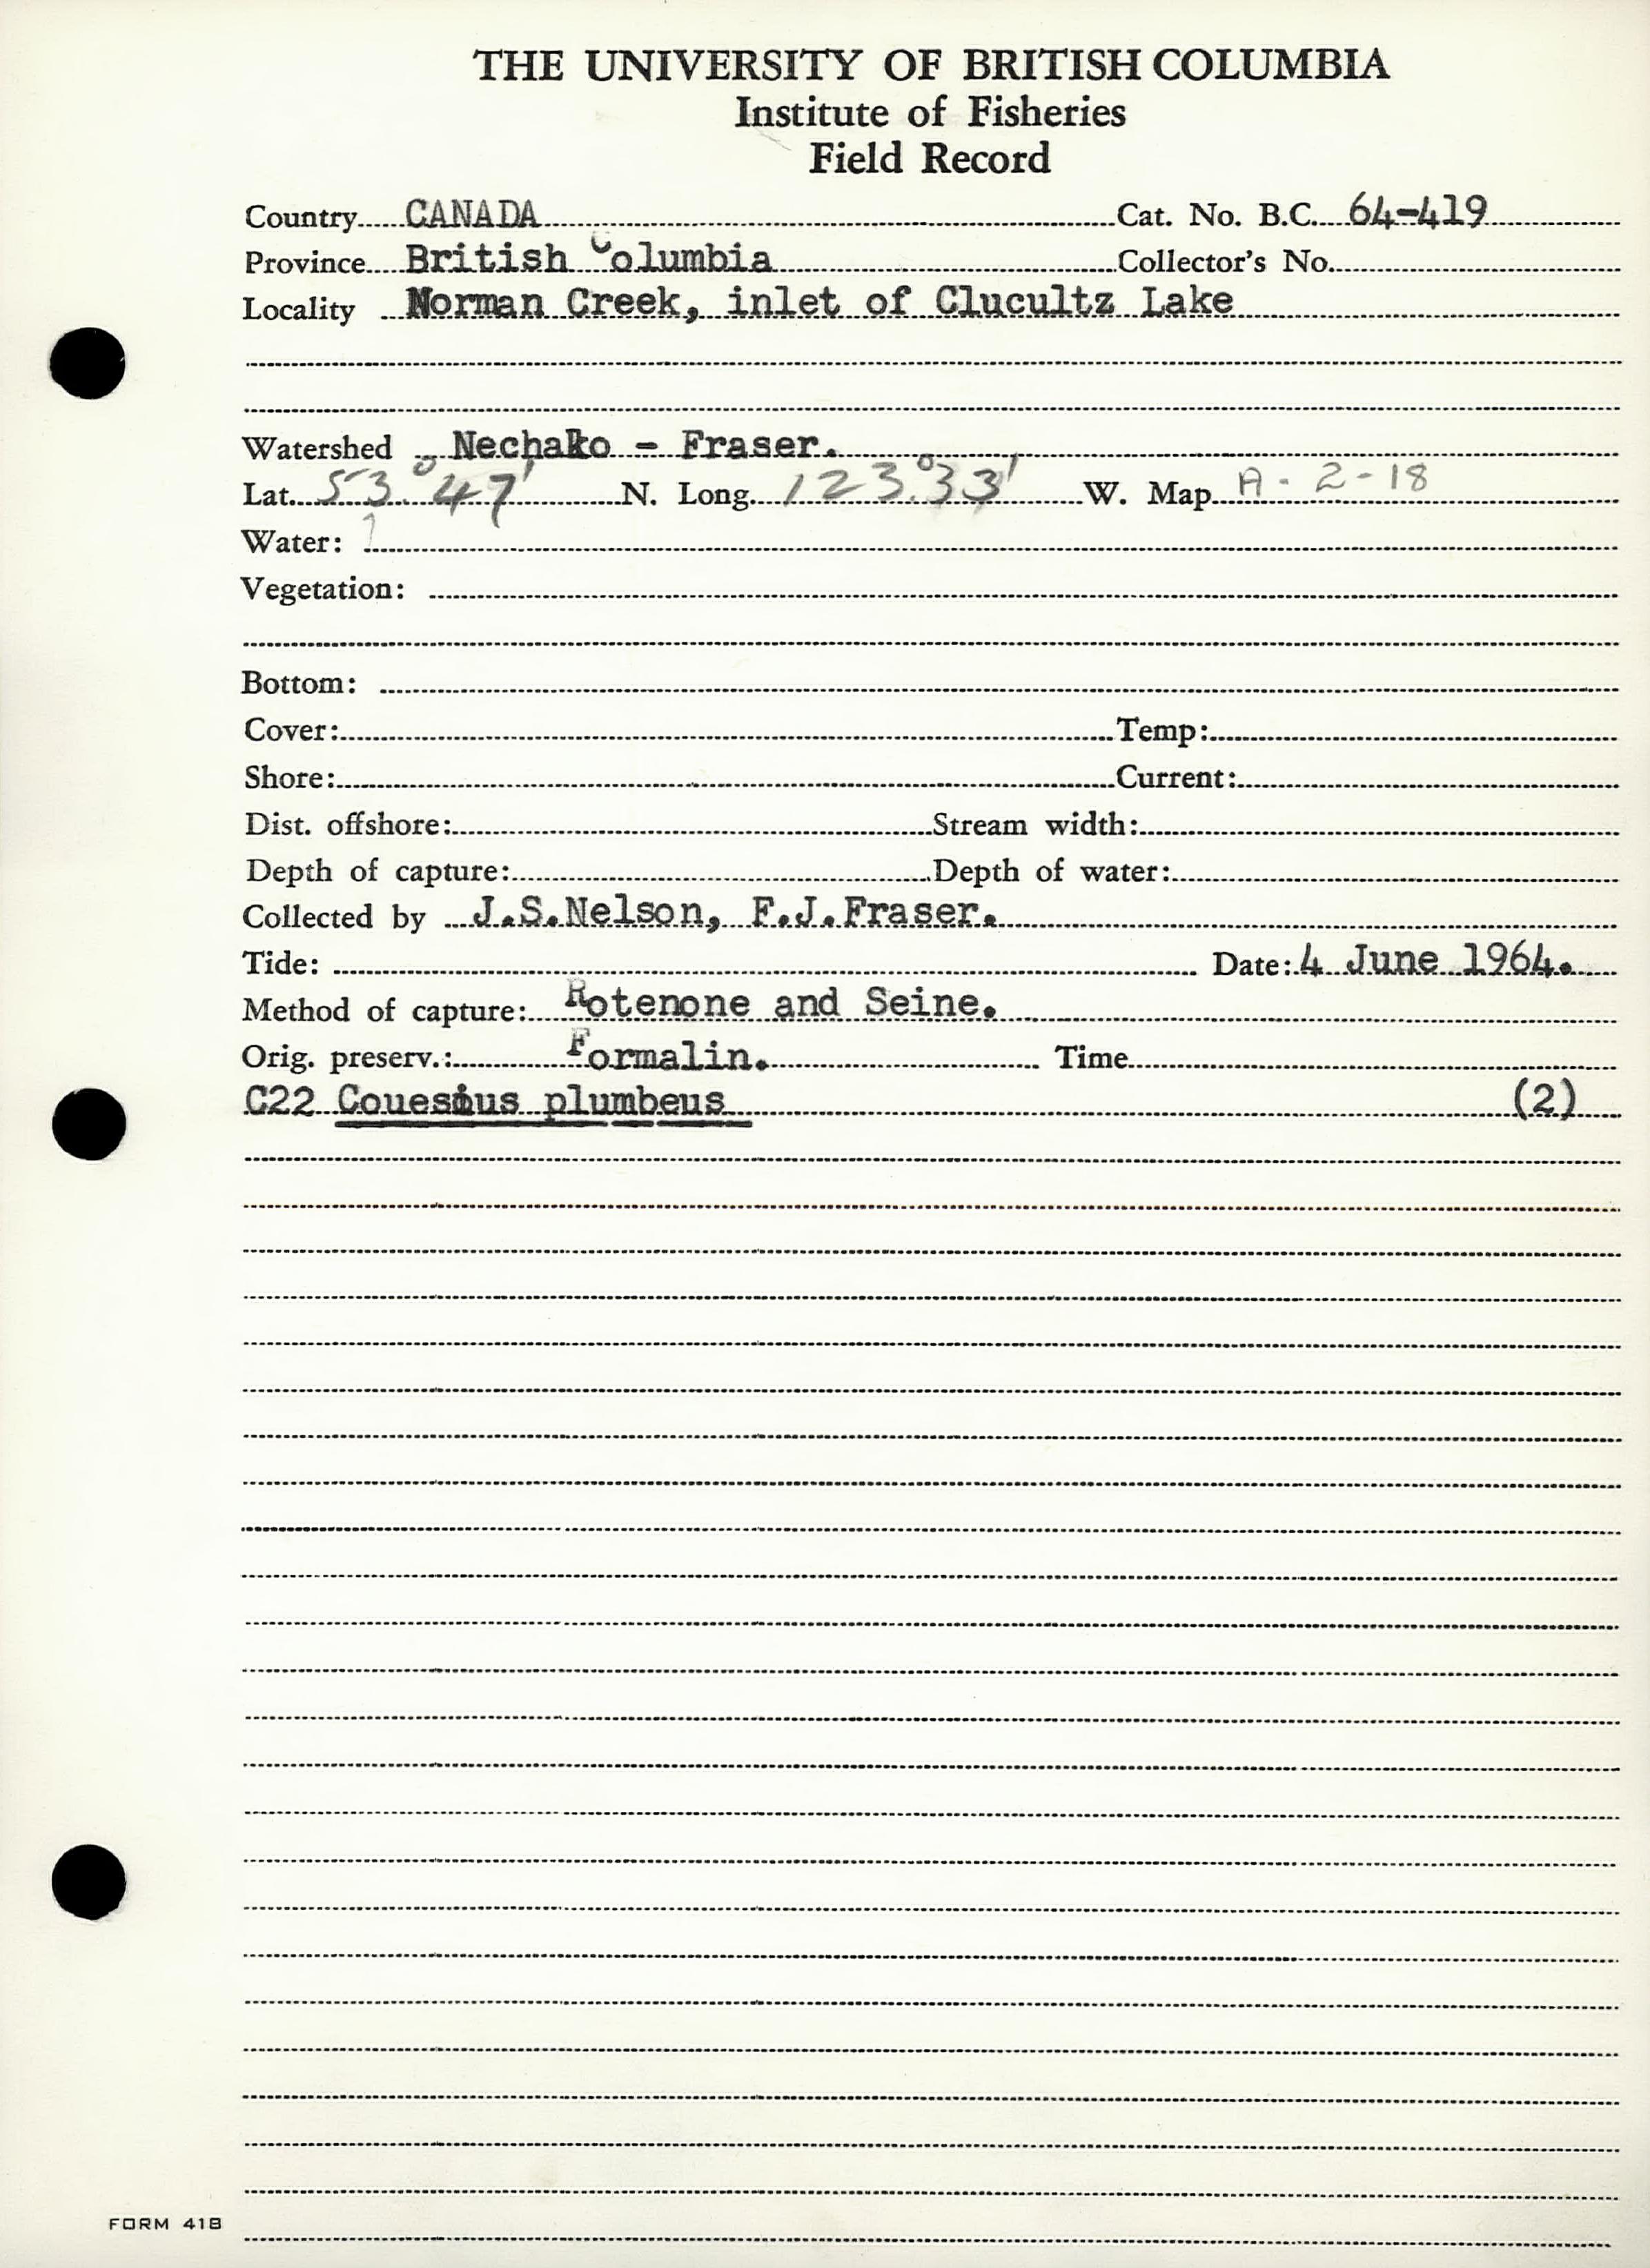 THE UNIVERSITY OF BRITISH COLUMBIA
Institute of Fisheries
Field Record
Country CANADA Cat. No. B.C. 64-419
Province British Columbia Collector's No.
Locality Norman Creek, inlet of Clucultz Lake
Watershed Nechako - Fraser.
Lat. 53° 47' N. Long. 123° 33' W. Map A-2-18
Water:
Vegetation:
Bottom:
Cover: Temp:
Shore: Current:
Dist. offshore: Stream width:
Depth of capture: Depth of water:
Collected by J.S.Nelson, F.J.Fraser.
Tide: Date: 4 June 1964.
Method of capture: Rotenone and Seine.
Orig. preserv.: Formalin. Time
C22 Couesius plumbeus (2)
FORM 41B